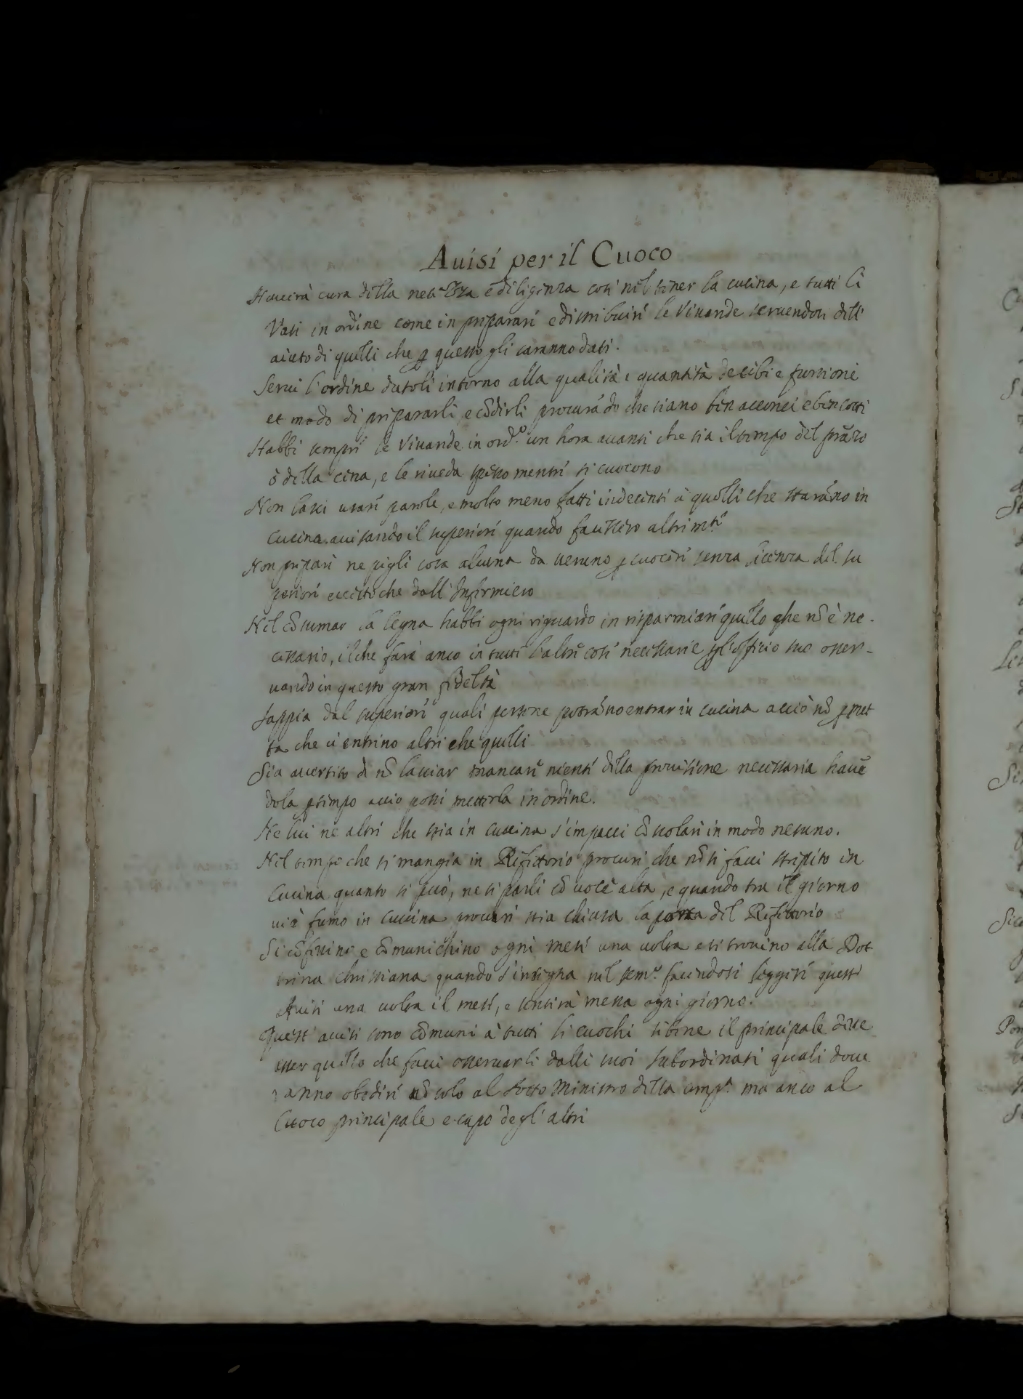 Auisi per il Cuoco
Hauerà cura della nett.ezza e diligenza così nel tener la cucina, e tutti li
Vasi in ordine come in preparare e distribuire le Viuande seruendosi dell'
aiuto di quelli che p questo gli saranno dati.
Serui l'ordine datoli intorno alla qualità e quantità de cibi e
et modo di prepararli e cõdirli procurãdo che siano ben acconci e ben cotti
Habbi sempre le Viuande in ord.e un hora auanti che sia il tempo del prãzo
ò della cena, e le riueda spesso mentre si cuocono
Non lasci usare parole, e molto meno fatti indecenti à quelli che starãno in
cucina auisando il superiore quando facessero altrim.ti
Non prepare ne pigli cosa alcuna da nessuno p cuocere senza licenza del su
periore eccetto che dall'Infirmiero
Nel cõsumar la legna habbi ogni riguardo in risparmiare quello che nõ è ne-
cessario, il che farà anco in tutte l'altre cose necessarie p l'officio suo osser-
uando in questo gran fideltà
Sappia dal superiore quali persone potrãno entrar in cucina acciò nõ pmet
ta che ui entrino altri che quelli
Sia auertito di nõ lasciar mancare niente della prouisione necessaria hauẽ
dola p tempo acciò possi metterla in ordine.
Ne lui ne altri che stia in cucina s'impacci cõ scolari in modo nessuno.
Nel tempo che si mangia in Refittorio procuri che nõ si facci strepito in
Cucina quanto si può, ne si parli cõ uoce alta, e quando tra il giorno
ui è fumo in cucina procuri stia chiusa la porta del Refittorio
Si cõfessino e cõmunichino ogni mese una uolta e si trouino alla Dot
trina Christiana quando s'insegna nel sem.o facendosi leggere questi
Auisi una uolta il mese, e sentirà messa ogni giorno.
Questi auisi sono cõmuni à tutti li cuochi sibene il principale deue
esser quello che facci osseruarli dalli suoi subordinati quali doue
ranno obedire nõ solo al sotto Ministro della ma anco al
Cuoco principale e capo degl'altri